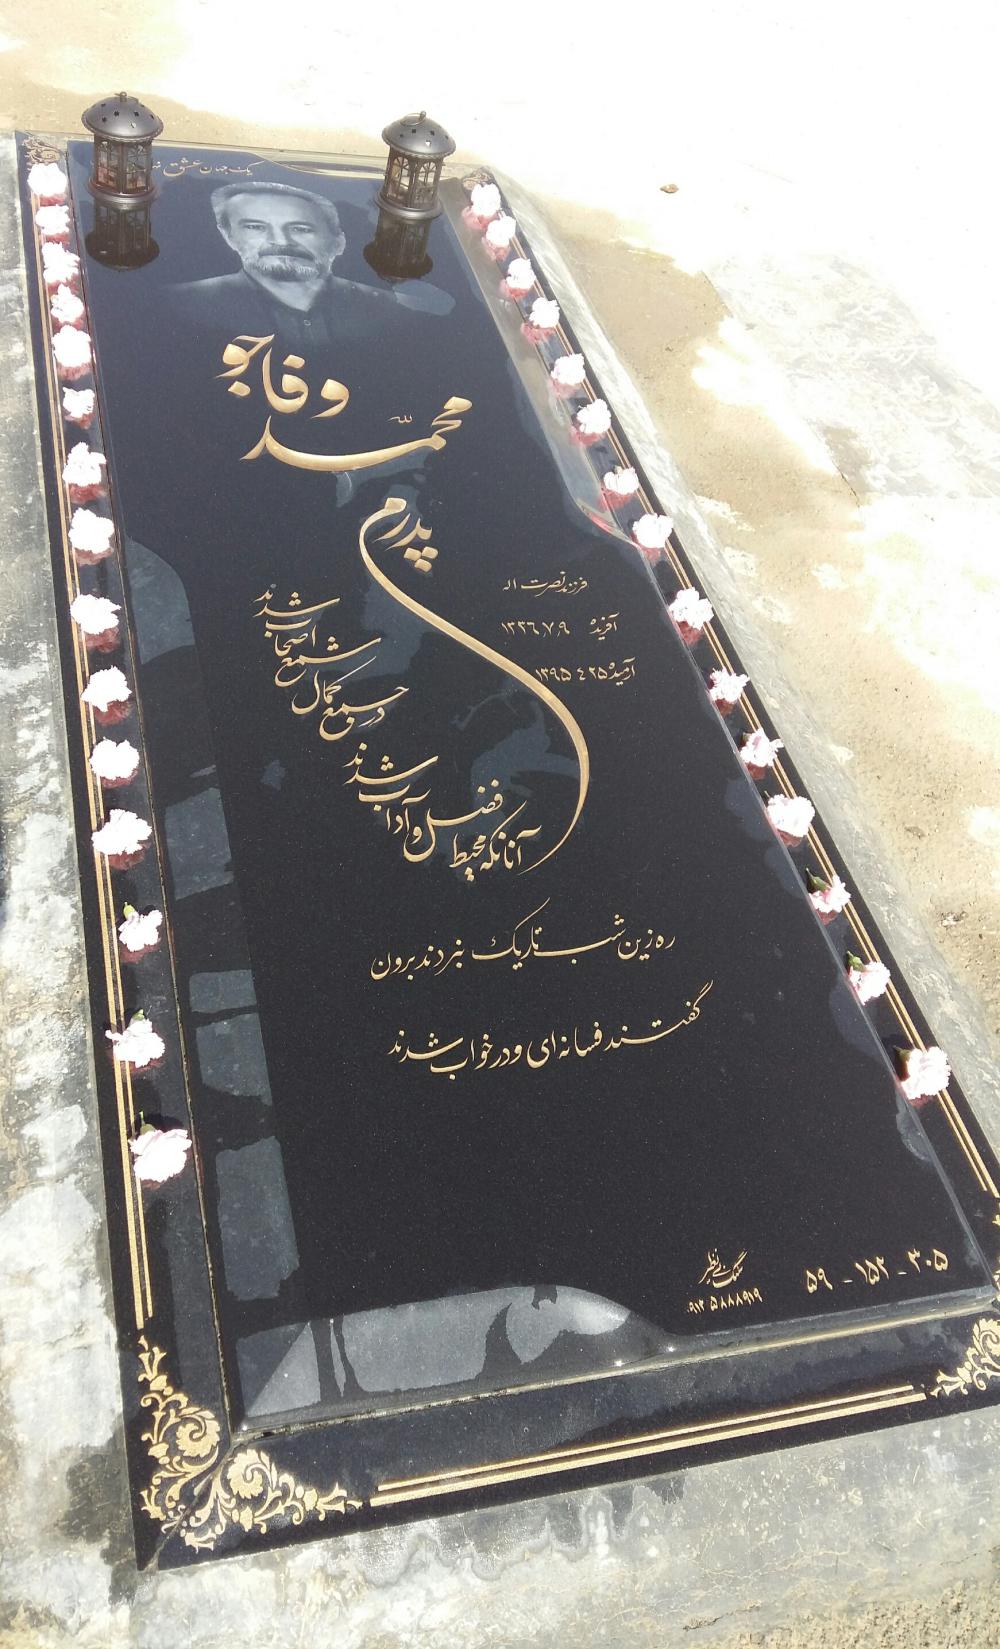 یک جهان عشق
محمّد وفاجو
پدرم
فرزند نصرت اله
آفریده ۱۳۲۶٫۷٫۹
آرمیده ۱۳۹۵٫۴٫۲۵
آنانکه محیط فضل و آداب شدند
در جمع کمال شمع اصحاب شدند
ره زین شب تاریک نبردند برون
گفتند فسانه ای و در خواب شدند
سنگ بی نظیر
۰۹۱۲ ۵۸۸۸۹۱۹
۳۰۵ - ۱۵۲ - ۵۹